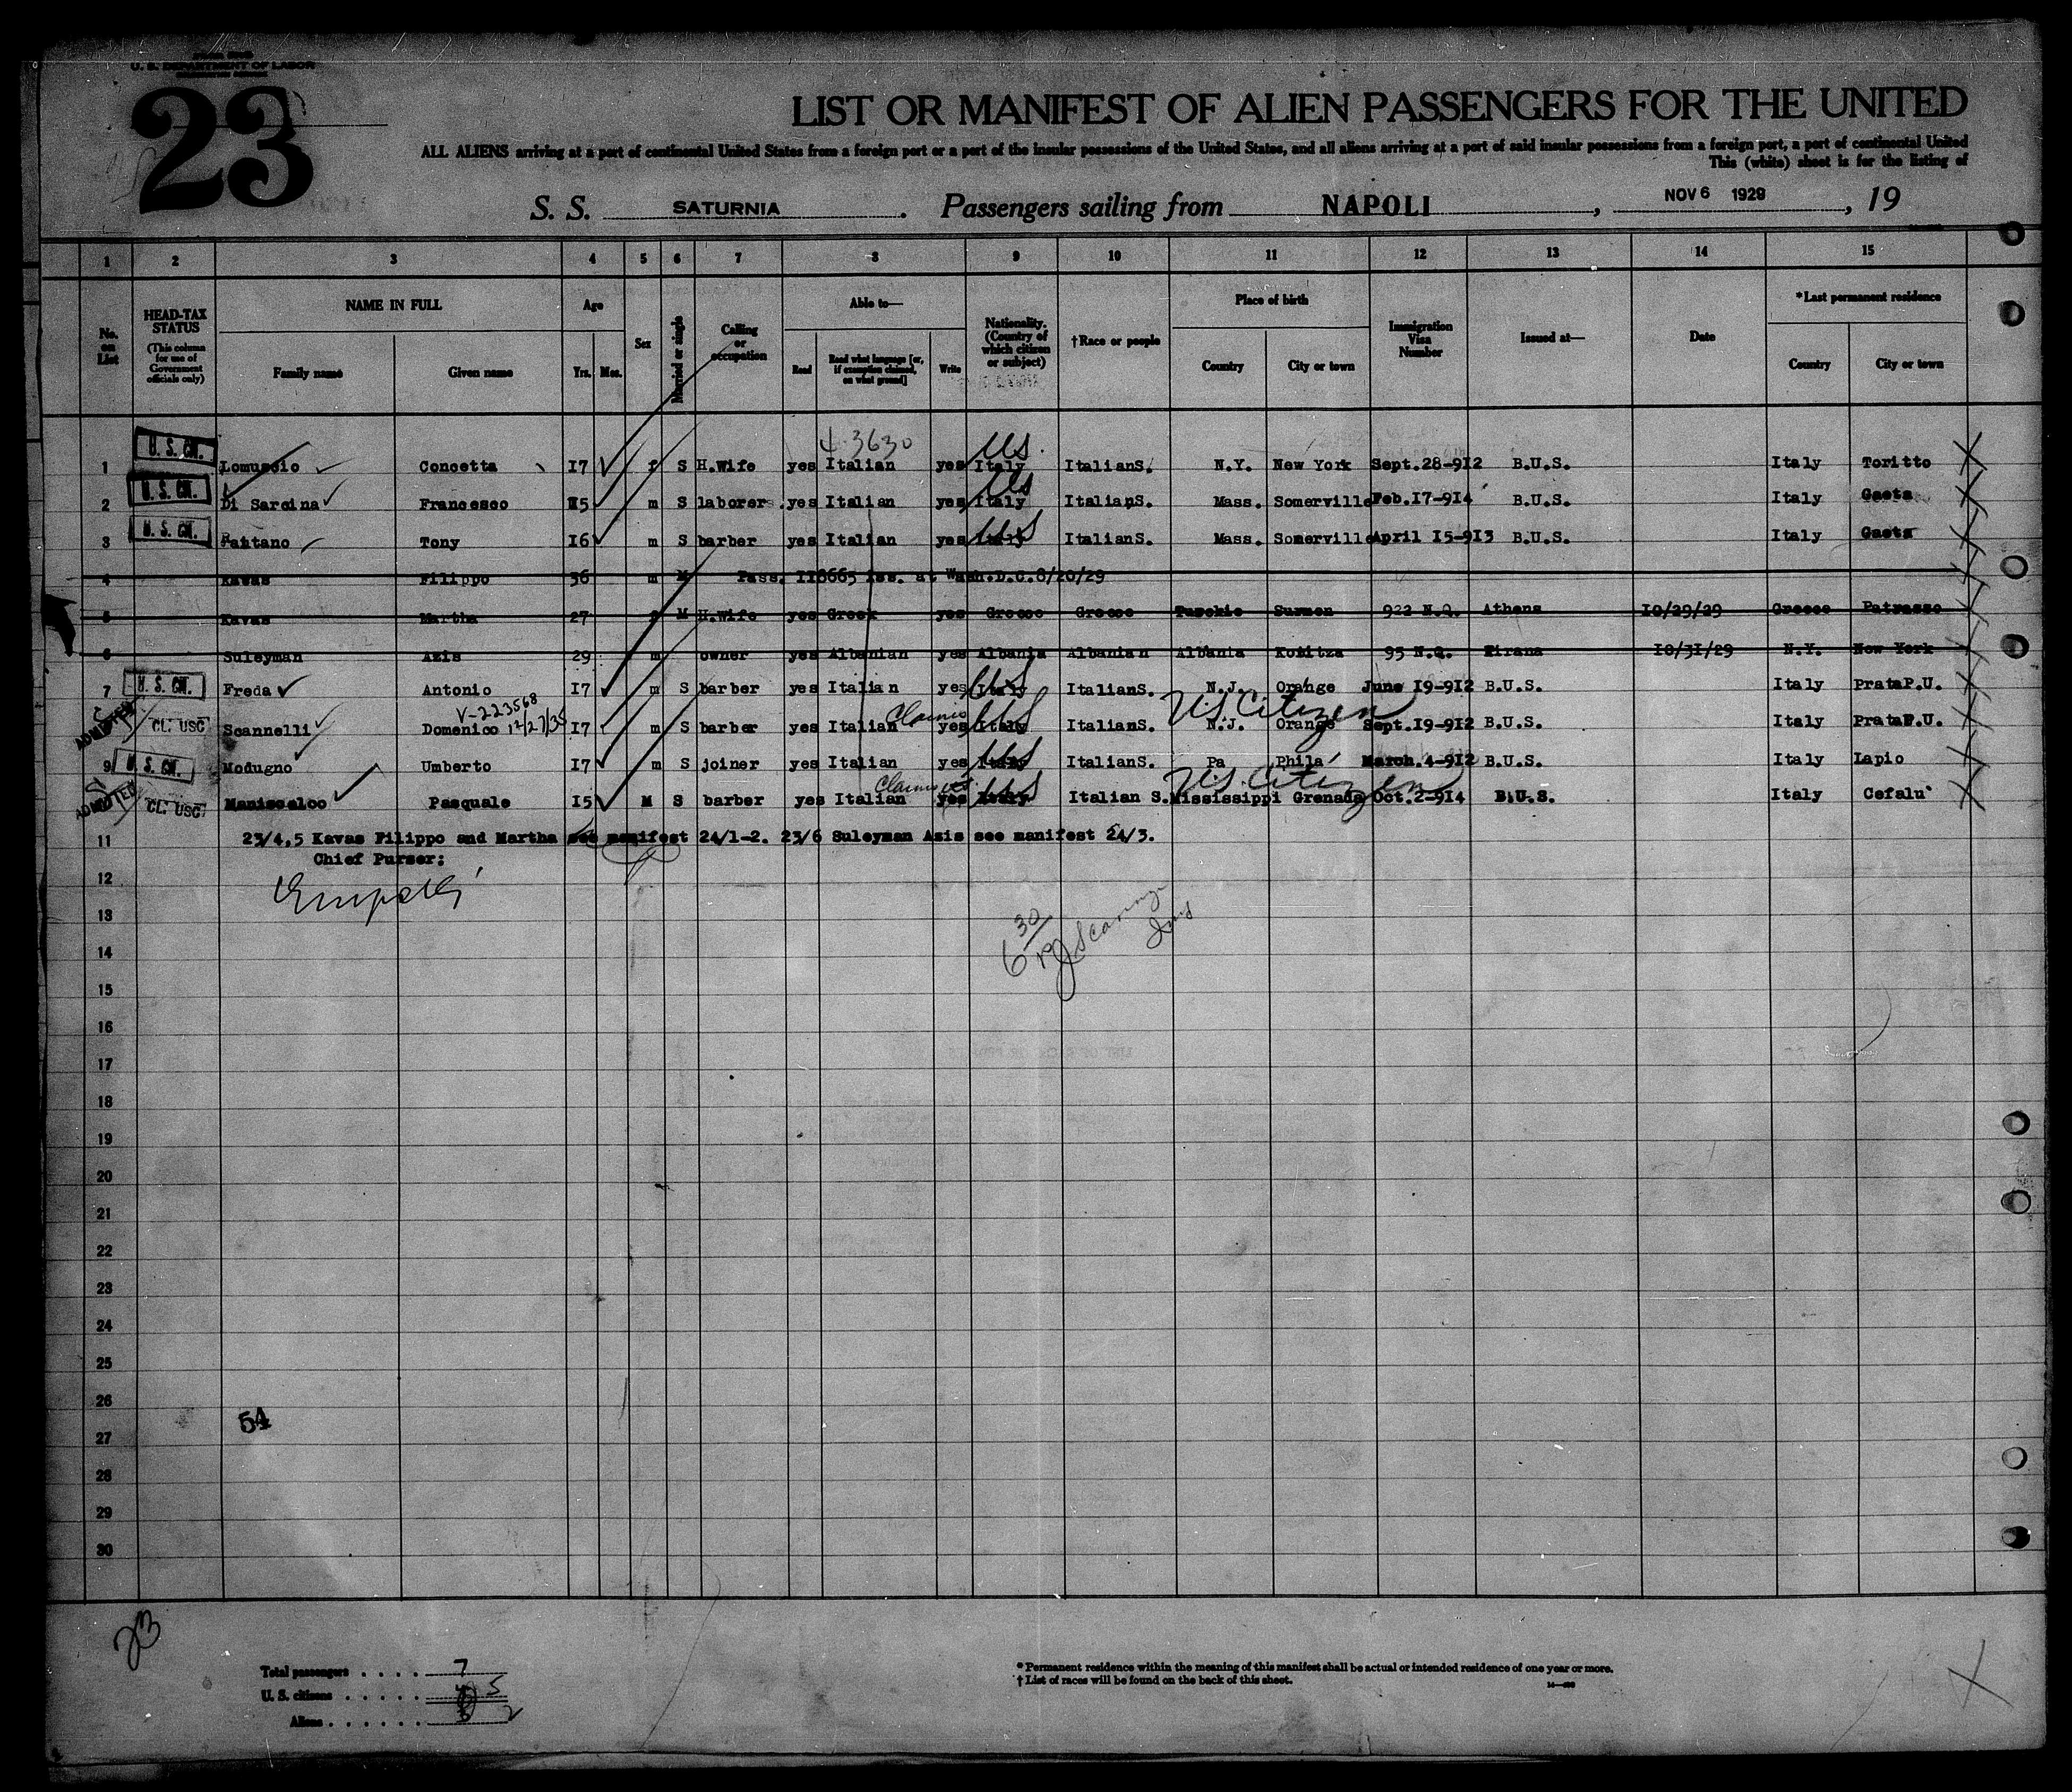 U. S. DEPARTMENT OF LABOR
23
LIST OR MANIFEST OF ALIEN PASSENGERS FOR THE UNITED
ALL ALIENS arriving at a port of continental United States from a foreign port or a port of the insular possessions of the United States, and all aliens arriving at a port of said insular possessions from a foreign port, a port of continental United
This (white) sheet is for the listing of
S. S. SATURNIA. Passengers sailing from NAPOLI, NOV 6 1929, 19
1 2 3 4 5 6 7 8 9 10 11 12 13 14 15
No. on List
HEAD-TAX STATUS (This column for use of Government officials only)
NAME IN FULL Family name Given name
Age Yrs. Mos.
Sex
Married or single
Calling or occupation
Able to— Read Read what language [or, if exemption claimed, on what ground] Write
Nationality. (Country of which citizen or subject)
†Race or people
Place of birth Country City or town
Immigration Visa Number
Issued at—
Date
*Last permanent residence Country City or town
4-3630
1 U. S. CIT. Lomuscio Concetta 17 f S H.Wife yes Italian yes Italy US. ItalianS. N.Y. New York Sept.28-912 B.U.S. Italy Toritto
2 U. S. CIT. Di Sarcina Francesco 15 m S laborer yes Italian yes Italy US ItalianS. Mass. Somerville Feb.17-914 B.U.S. Italy Gaeta
3 U. S. CIT. Paitano Tony 16 m S barber yes Italian yes Italy US ItalianS. Mass. Somerville April 15-913 B.U.S. Italy Gaeta
4 Kavas Filippo 36 m M Pass. 118665 Iss. at Wash.D.C.8/20/29
5 Kavas Martha 27 f M H.Wife yes Greek yes Greece Greece Turckie Surmen 922 N.Q. Athens 10/29/29 Greece Patrasso
6 Suleyman Azis 29 m owner yes Albanian yes Albania Albanian Albania Kolitza 95 N.Q. Tirana 10/31/29 N.Y. New York
7 U. S. CIT. Freda Antonio 17 m S barber yes Italian yes Italy US ItalianS. N.J. Orange June 19-912 B.U.S. Italy PrataP.U.
V-223568 12/27/35
ADMITTED CL. USC Scannelli Domenico 17 m S barber yes Italian yes Italy US ItalianS. N.J. Orange Sept.19-912 B.U.S. Italy PrataP.U.
Claims US Citizen
9 U. S. CIT. Modugno Umberto 17 m S joiner yes Italian yes Italy US ItalianS. Pa Phila March.4-912 B.U.S. Italy Lapio
ADMITTED CL. USC Maniscalco Pasquale 15 M S barber yes Italian yes Italy US Italian S. Mississippi Grenada Oct.2-914 B.U.S. Italy Cefalu'
Claims US Citizen
11 23/4.5 Kavas Filippo and Martha see manifest 24/1-2. 23/6 Suleyman Azis see manifest 24/3.
Chief Purser:
12
13
14
15
16
17
18
19
20
21
22
23
24
25
26
54
27
28
29
30
23
Total passengers . . . . 7
U. S. citizens . . . . . 5
Aliens . . . . . . 2
* Permanent residence within the meaning of this manifest shall be actual or intended residence of one year or more.
† List of races will be found on the back of this sheet.